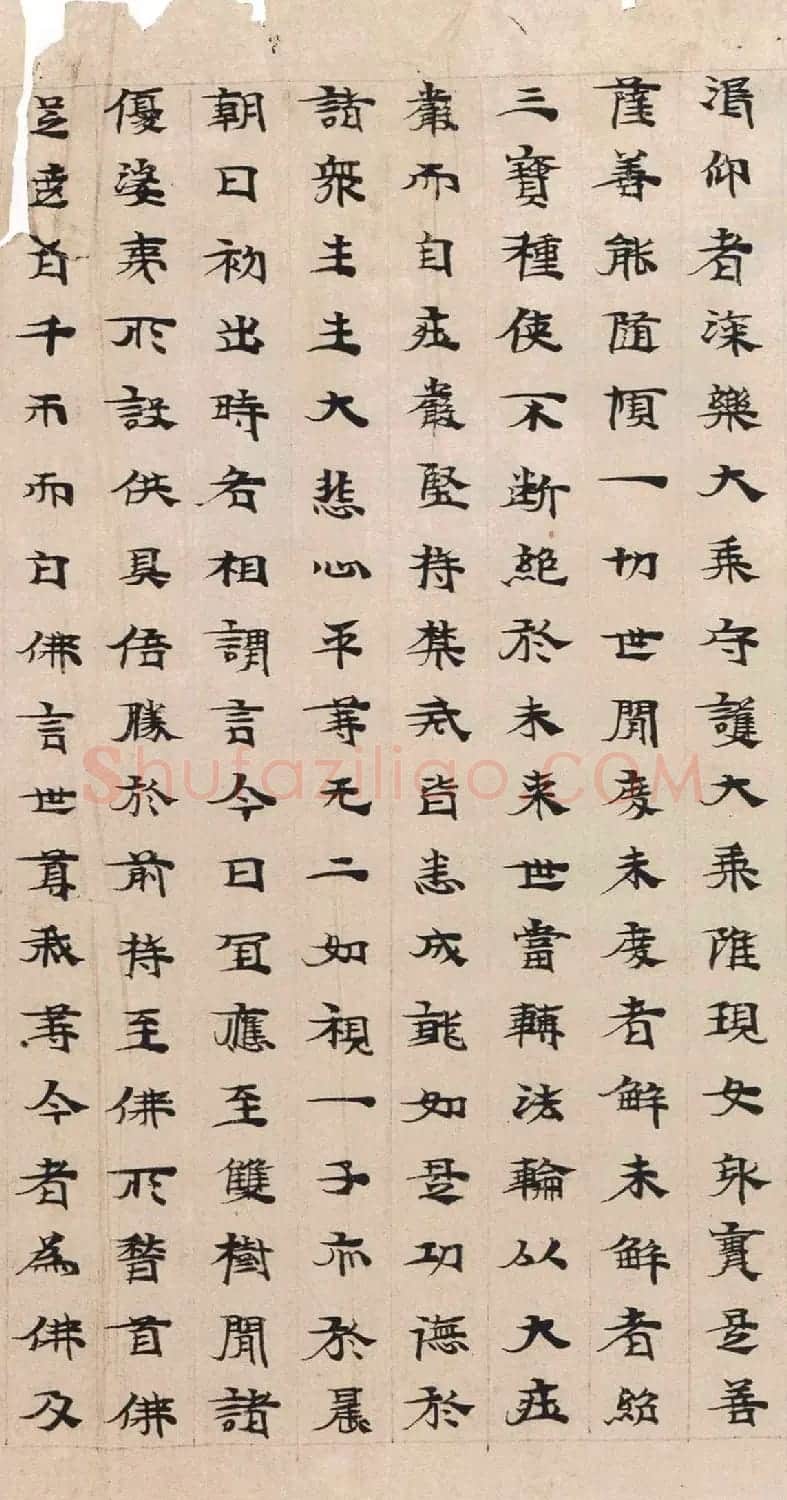 渴仰者深樂大乗守護大乗雖現女身實是菩
薩善能随順一切世間度未度者解未解者紹
三寶種使不断絕於未来世當轉法輪以大莊
嚴而自莊嚴堅持禁戒皆悉成就如是功德於
諸衆生生大悲心平等无二如視一子亦於晨
朝日初出時各相謂言今日冝應至雙樹間諸
優婆夷所設供具倍勝於前持至佛所稽首佛
足遶百千帀而白佛言世尊我等今者為佛及
Shufaziliao.COM